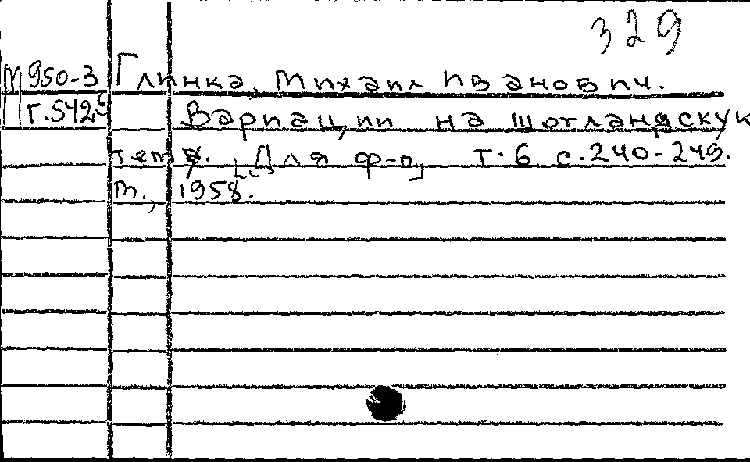 329
М950-3 Глинка, Михаил Иванович.
Г.542 Вариации на шотландскую
тему. [Для ф-п] т.6 с.240-249.
М., 1958.